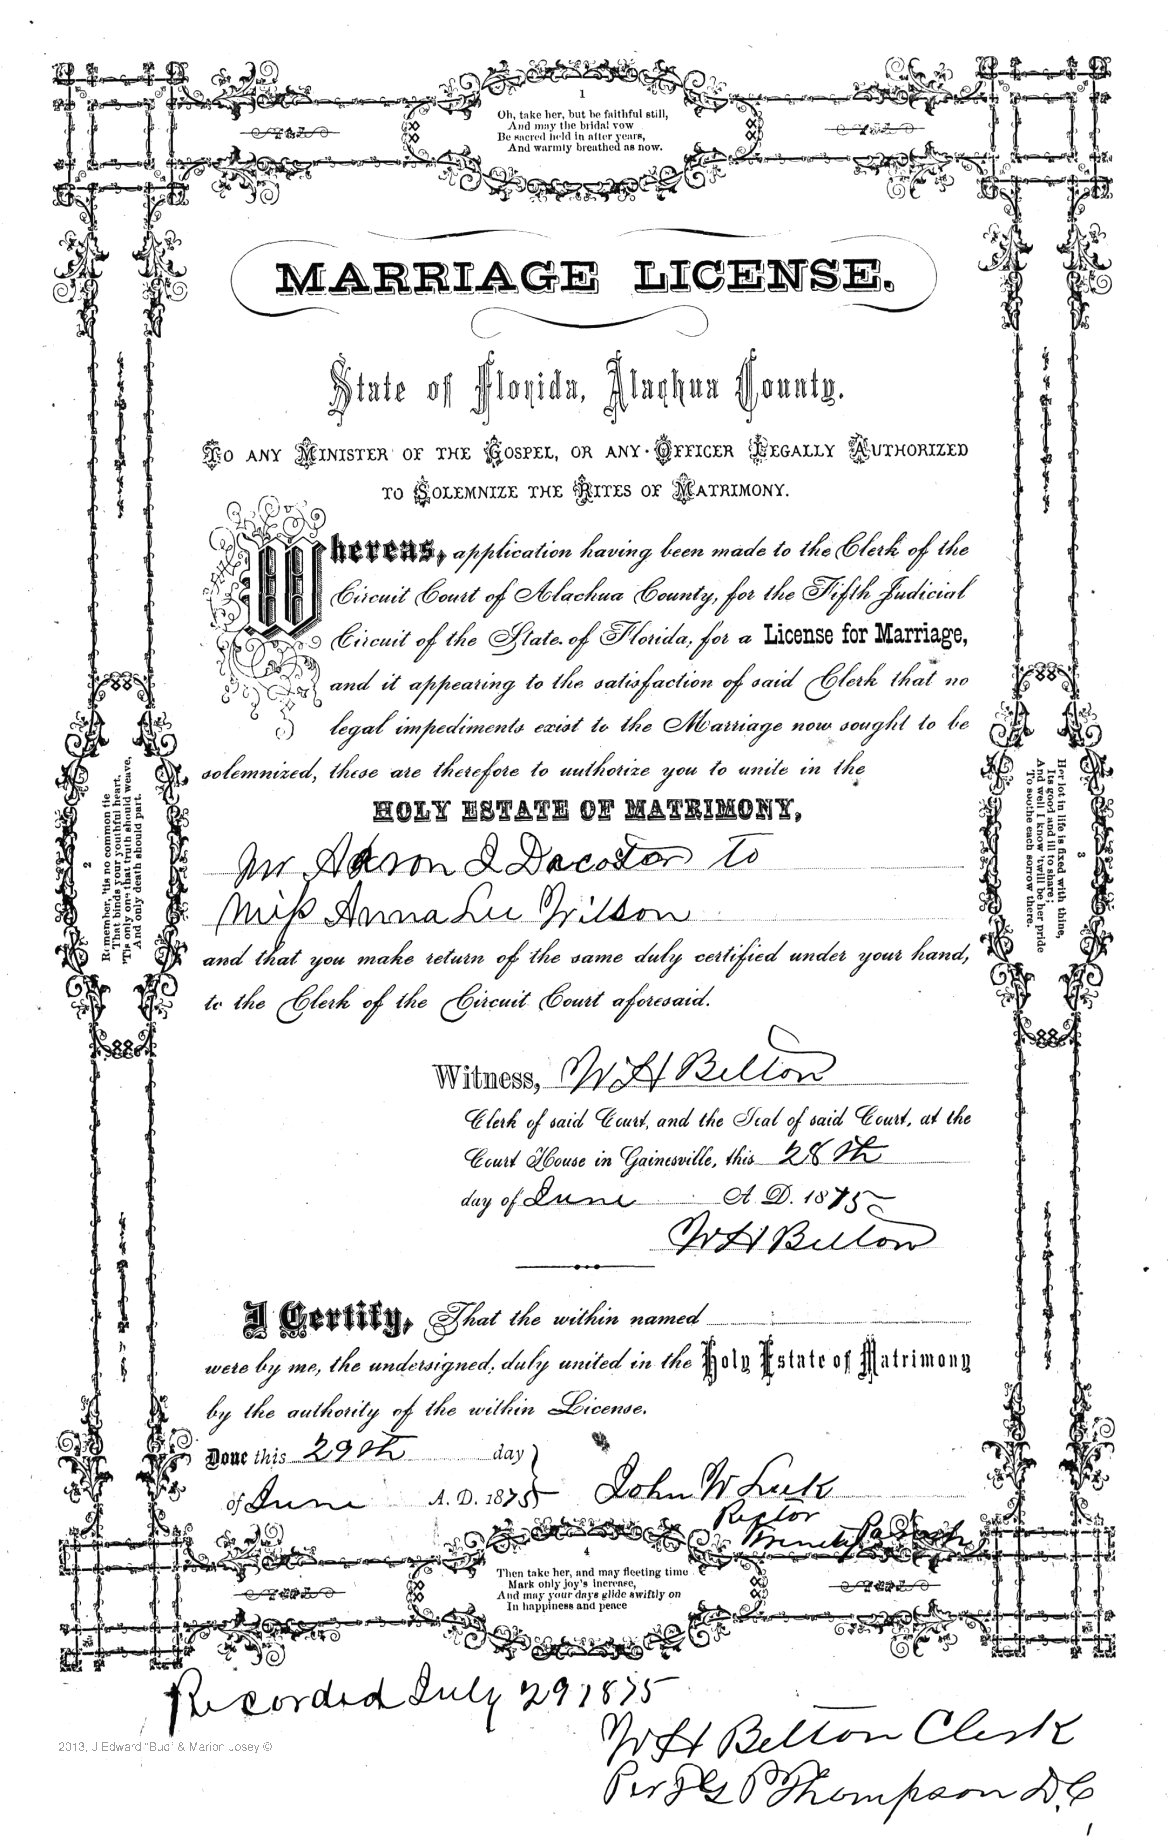 1
Oh, take her, but be faithful still,
And may the bridal vow
Be sacred held in after years,
And warmly breathed as now.
MARRIAGE LICENSE.
State of Florida, Alachua County.
TO ANY MINISTER OF THE GOSPEL, OR ANY OFFICER LEGALLY AUTHORIZED
TO SOLEMNIZE THE RITES OF MATRIMONY.
Whereas, application having been made to the Clerk of the
Circuit Court of Alachua County, for the Fifth Judicial
Circuit of the State of Florida, for a License for Marriage,
and it appearing to the satisfaction of said Clerk that no
legal impediments exist to the Marriage now sought to be
solemnized, these are therefore to authorize you to unite in the
HOLY ESTATE OF MATRIMONY,
Mr Aaron I Dacostar to
Miss Anna Lee Wilson
and that you make return of the same duly certified under your hand,
to the Clerk of the Circuit Court aforesaid.
Witness, W H Belton
Clerk of said Court, and the Seal of said Court, at the
Court House in Gainesville, this 28th
day of June A. D. 1875
W H Belton
I Certify, That the within named
were by me, the undersigned, duly united in the Holy Estate of Matrimony
by the authority of the within License.
Done this 29th day
of June A. D. 1875 John W
Rector
2
Remember, 'tis no common tie
That binds your youthful heart,
'Tis only one that truth should weave,
And only death should part.
3
Her lot in life is fixed with thine,
Its good and ill to share;
And well I know 'twill be her pride
To soothe each sorrow there.
4
Then take her, and may fleeting time
Mark only joy's increase,
And may your days glide swiftly on
In happiness and peace
Recorded July 29 1875
W H Belton Clerk
Per Thompson D.C
2013, J Edward "Bud" & Marion Josey ©